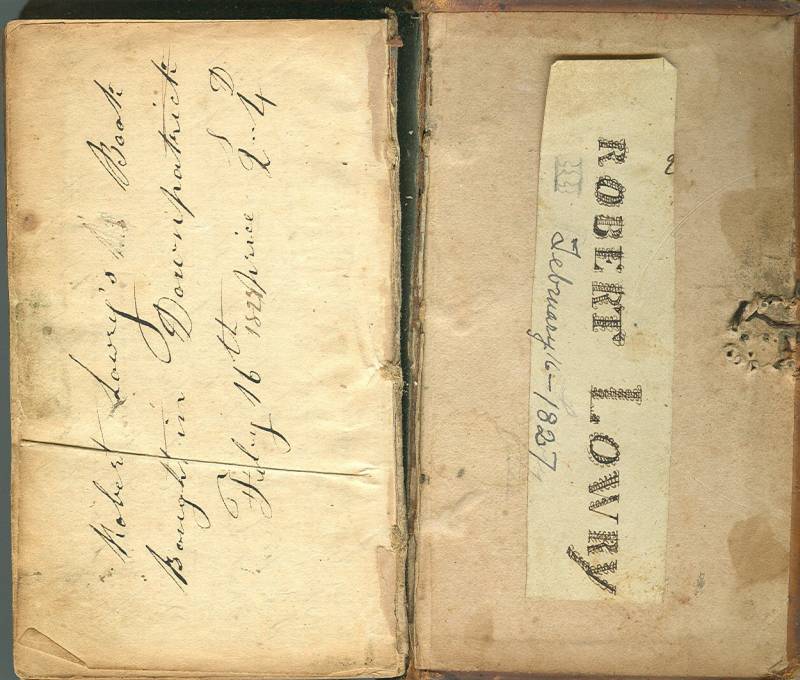 Robert Lowry's Book
Bought in Downpatrick
S D
Feby 16th price 2 - 4
ROBERT LOWRY
February 16 - 1827